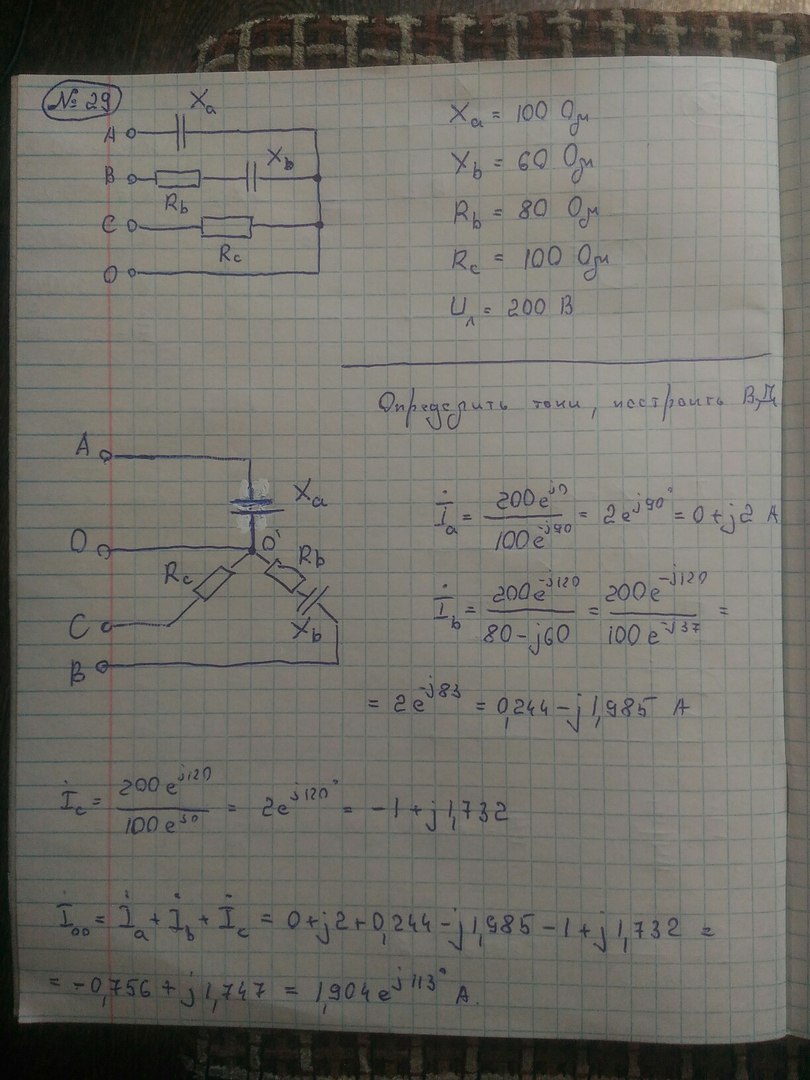 № 29
Xa
A
B
Xb
Rb
C
Rc
O
Xa = 100 Ом
Xb = 60 Ом
Rb = 80 Ом
Rc = 100 Ом
Uл = 200 В
Определить токи, построить В.Д.
A
Xa
O
O'
Rb
Rc
C
Xb
B
İa = 200e^j0 / 100e^-j90 = 2e^j90° = 0+j2 A
İb = 200e^-j120 / 80-j60 = 200e^-j120 / 100e^-j37 =
= 2e^-j83 = 0,244 - j1,985 A
İc = 200e^j120 / 100e^j0 = 2e^j120° = -1+j1,732
İoo = İa + İb + İc = 0+j2+0,244-j1,985-1+j1,732 =
= -0,756 + j1,747 = 1,904e^j113° A.